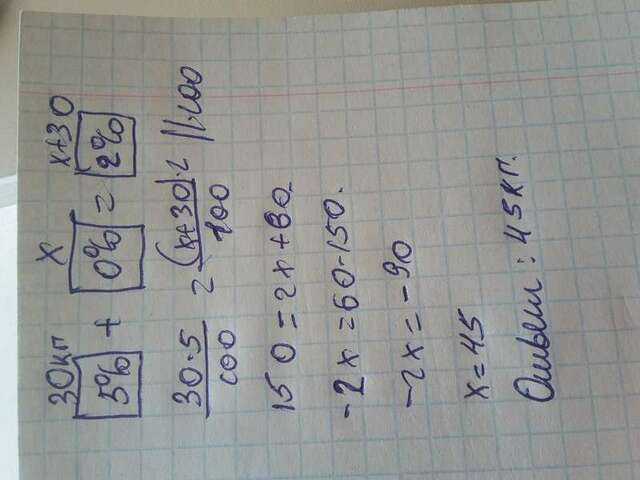 30кг x x+30
5% + 0% = 2%
30·5/100 = (x+30)·2/100 ||·100
150 = 2x+60
-2x = 60-150.
-2x = -90
x = 45
Ответ: 45кг.